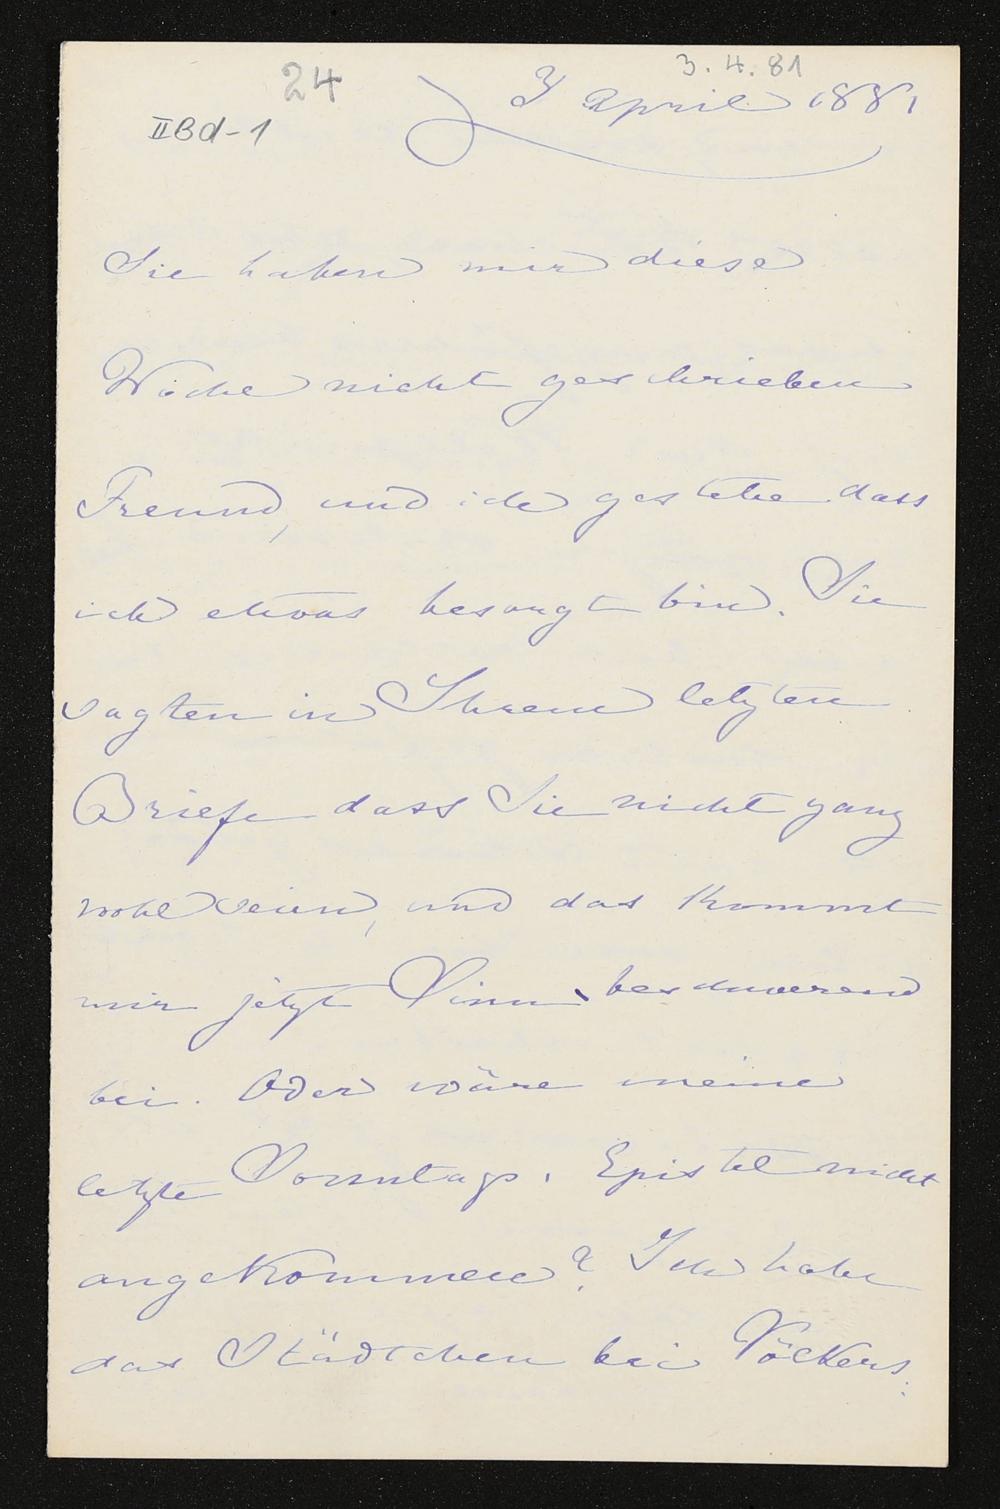 3. 4. 81
24
3 April 1881
IIBd-1
Sie haben mir diese
Woche nicht geschrieben
Freund, und ich gestehe dass
ich etwas besorgt bin. Sie
sagten in Ihrem letzten
Briefe dass Sie nicht ganz
wohl seien, und das kommt
mir jetzt Sinn beschwerend
bei. Oder wäre meine
letzte Sonntags. Epistel nicht
angekommen? Ich habe
das Städtchen bei Vöckers: